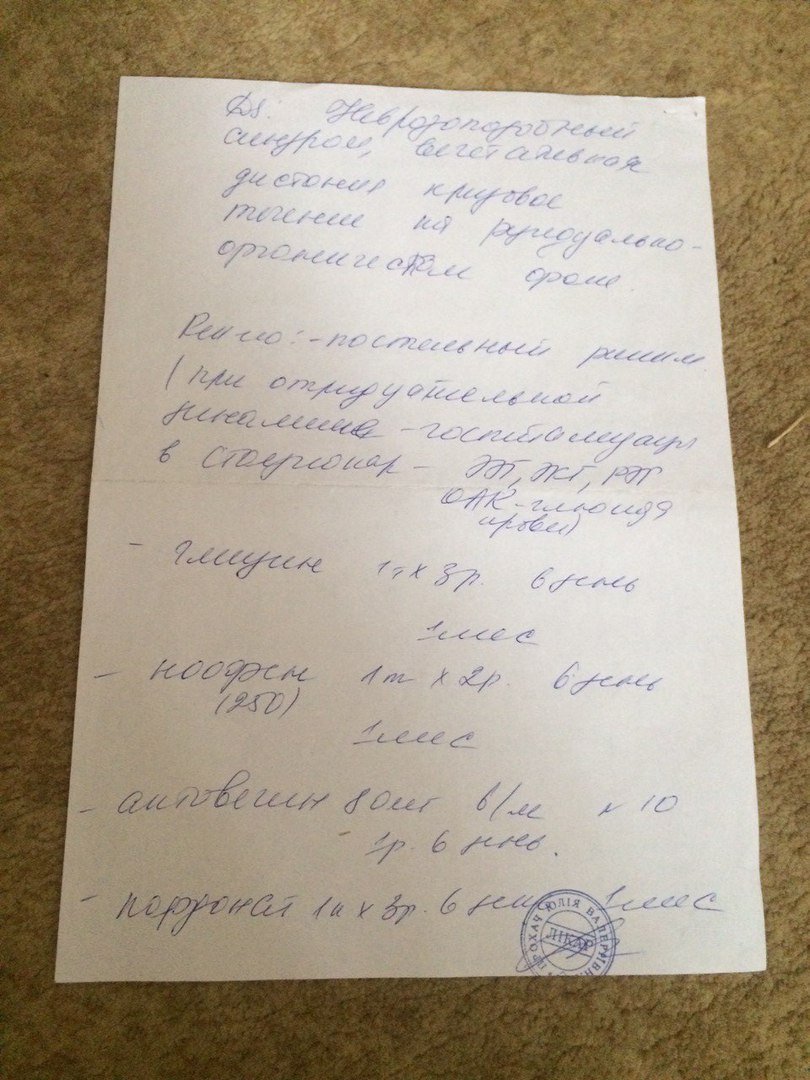 Ds: Неврозоподобный
синдром, вегетативная
дистония кризовое
течение на резидуально-
органическом фоне.
Рек-но: - постельный режим
(при отрицательной
динамике - госпитализация
в стационар - ЭЭГ, ЭКГ, РЭГ
ОАК - глюкоза
крови)
- глицин 1т х 3р. в день
1 мес
- ноофен 1т х 2р. в день
(250)
1 мес
- актовегин 80мг в/м N 10
1р. в день.
- пафронат 1к х 3р. в день 1 мес
ПРОХАЧ ЮЛІЯ ВАЛЕРІЇВНА
ЛІКАР